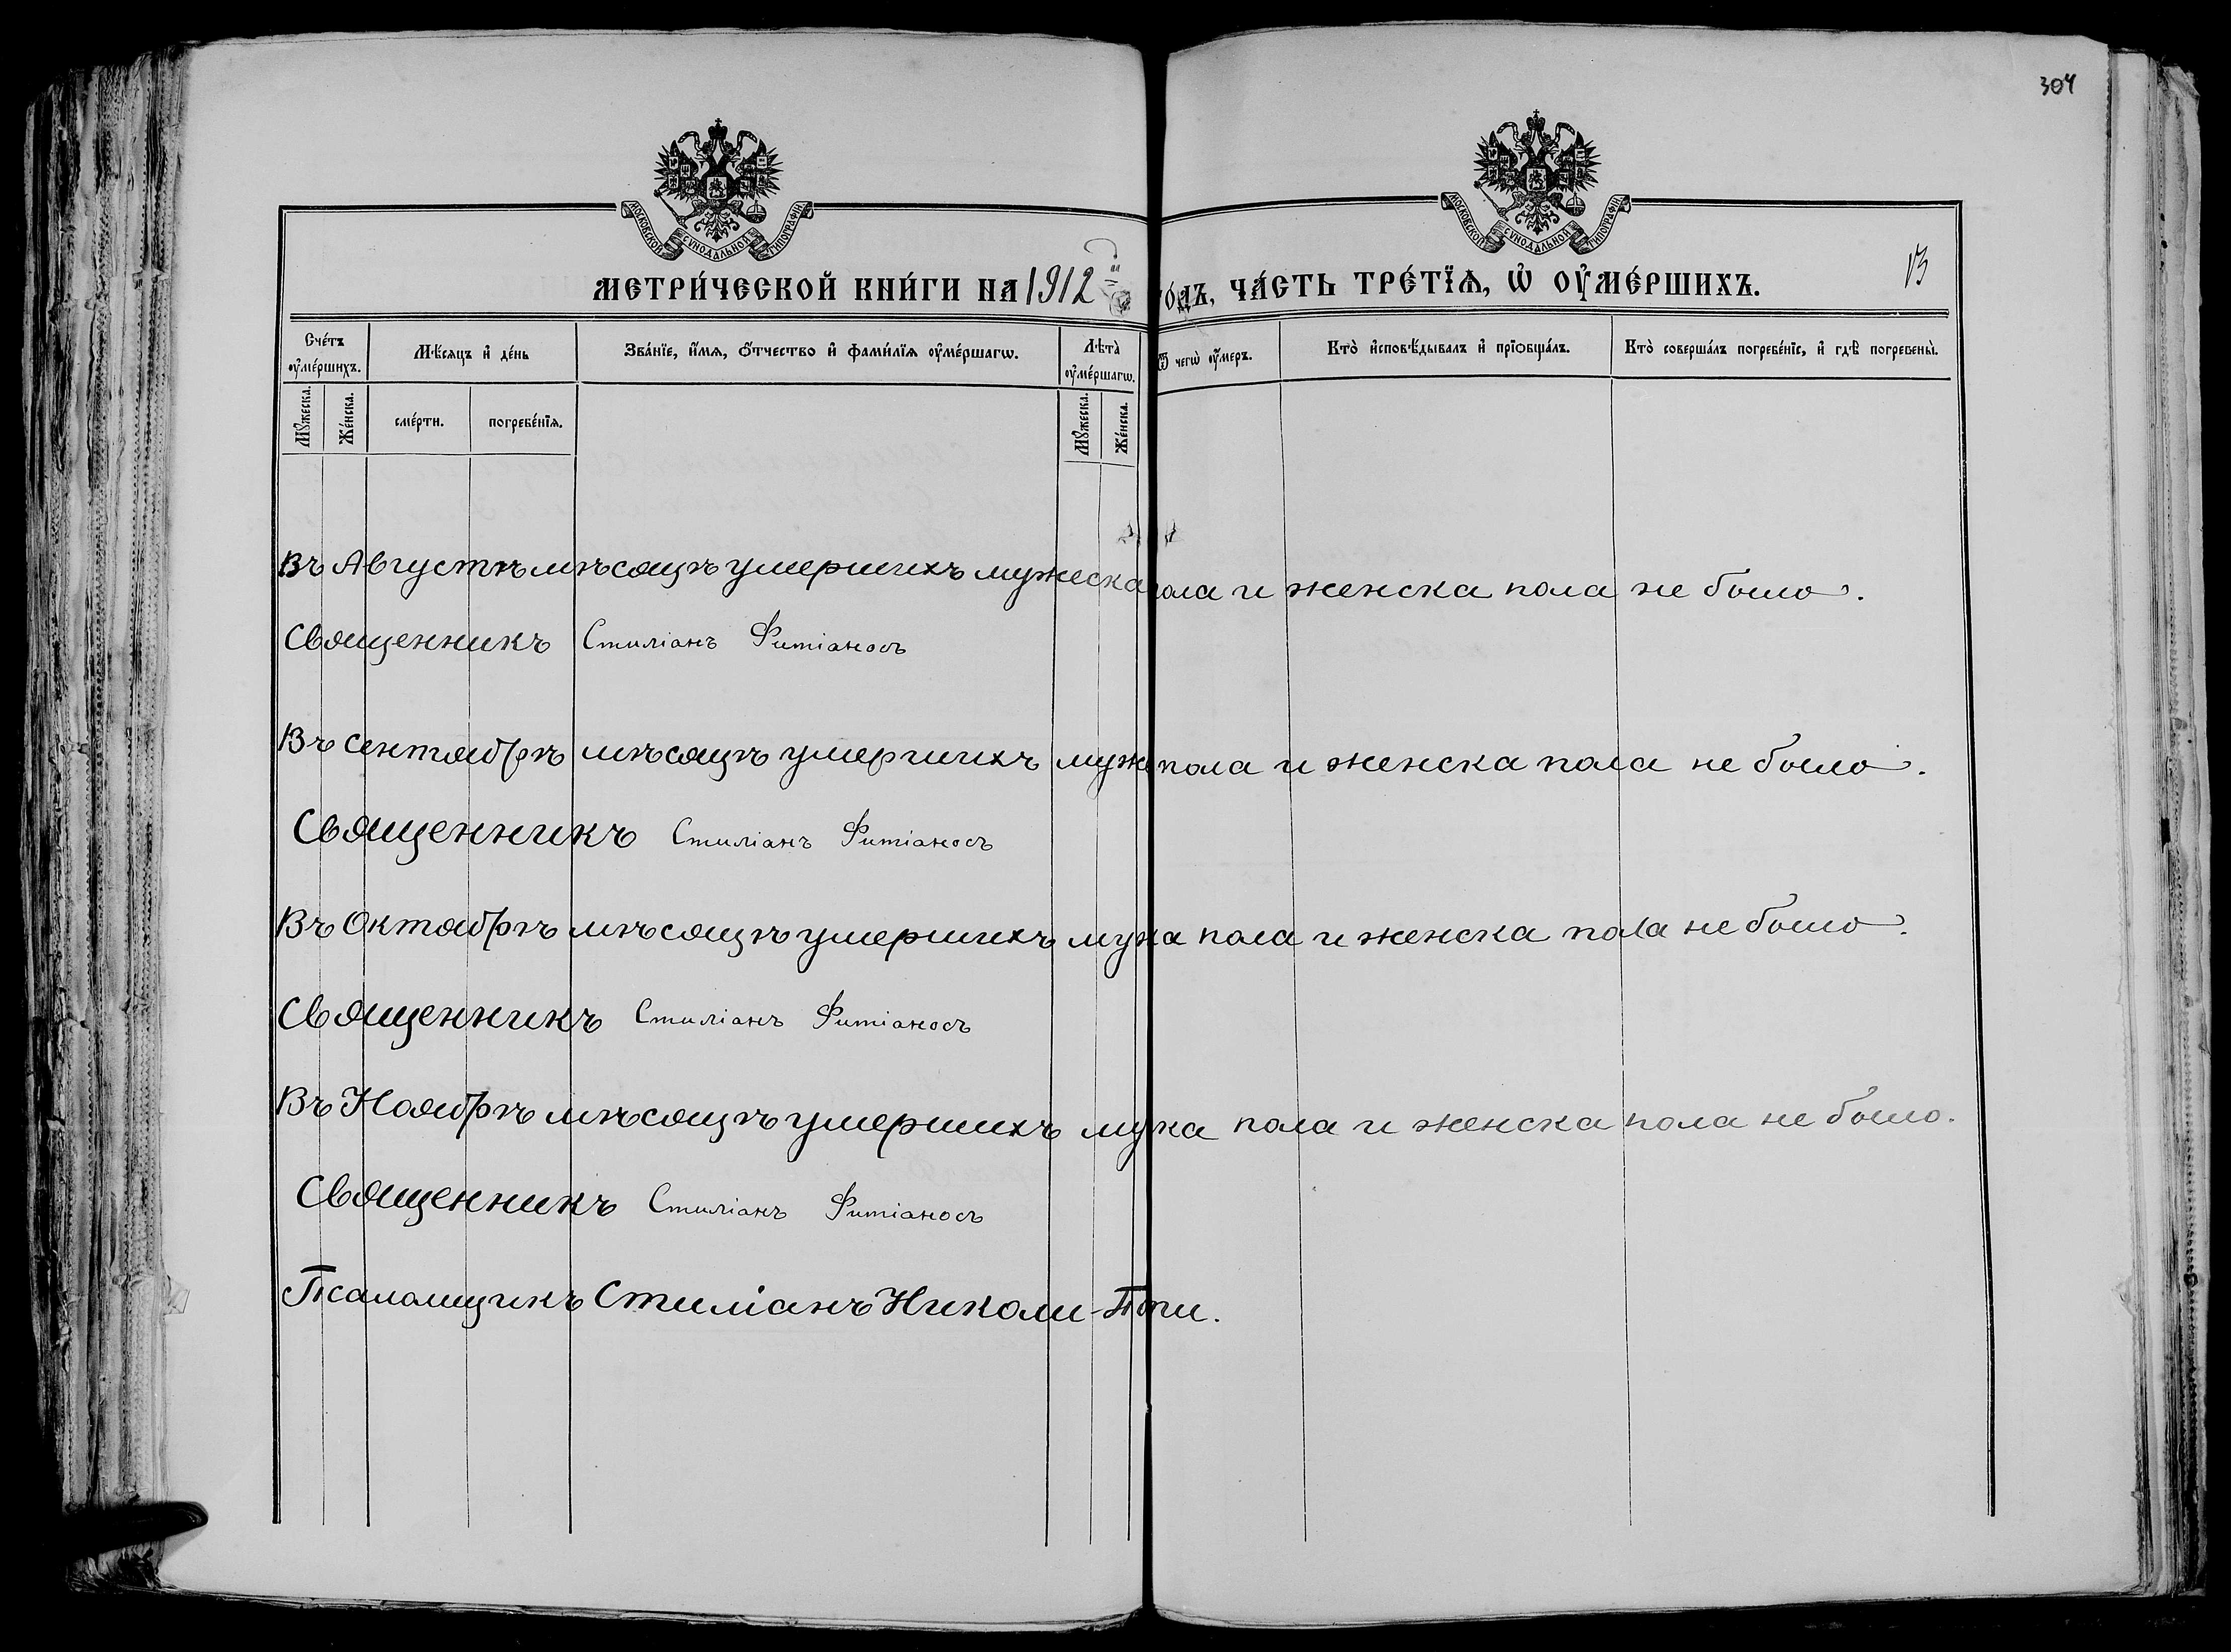 304
МОСКОВСКОЙ СѴНОДАЛЬНОЙ ТИПОГРАФІИ
МОСКОВСКОЙ СѴНОДАЛЬНОЙ ТИПОГРАФІИ
13
МЕТРИ́ЧЕСКОЙ КНИ́ГИ НА 1912 го́дъ, ЧА́СТЬ ТРЕ́ТЇѦ, Ѡ҆ ОУ҆МЕ́РШИХЪ.
Сче́тъ оу҆ме́ршихъ.
Мѣ́сяцъ и҆ де́нь
Зва́нїе, и҆́мѧ, ѻ҆́тчество и҆ фами́лїѧ оу҆ме́ршагѡ.
Лѣта̀ оу҆ме́ршагѡ.
Ѿ чегѡ̀ оу҆́меръ.
Кто̀ и҆сповѣ́дывалъ и҆ прїѡбща́лъ.
Кто̀ соверша́лъ погребе́нїе, и҆ гдѣ̀ погребены̀.
Мꙋ́жеска.
Же́нска.
сме́рти.
погребе́нїѧ.
Мꙋ́жеска.
Же́нска.
Въ Августѣ мѣсяцѣ умершихъ мужеска пола и женска пола не было.
Священникъ Стиліанъ Фитіаносъ
Въ сентябрѣ мѣсяцѣ умершихъ муж пола и женска пола не было.
Священникъ Стиліанъ Фитіаносъ
Въ Октябрѣ мѣсяцѣ умершихъ мужа пола и женска пола не было.
Священникъ Стиліанъ Фитіаносъ
Въ Ноябрѣ мѣсяцѣ умершихъ мука пола и женска пола не было.
Священникъ Стиліанъ Фитіаносъ
Псаломщикъ Стиліанъ Николи-